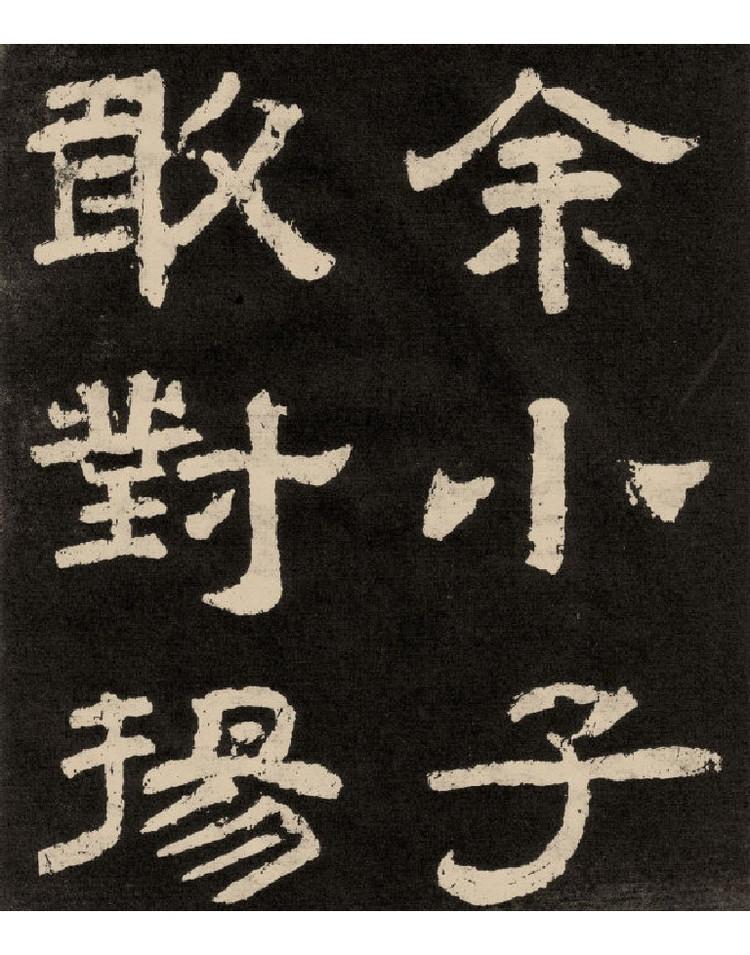 余小子
敢對揚